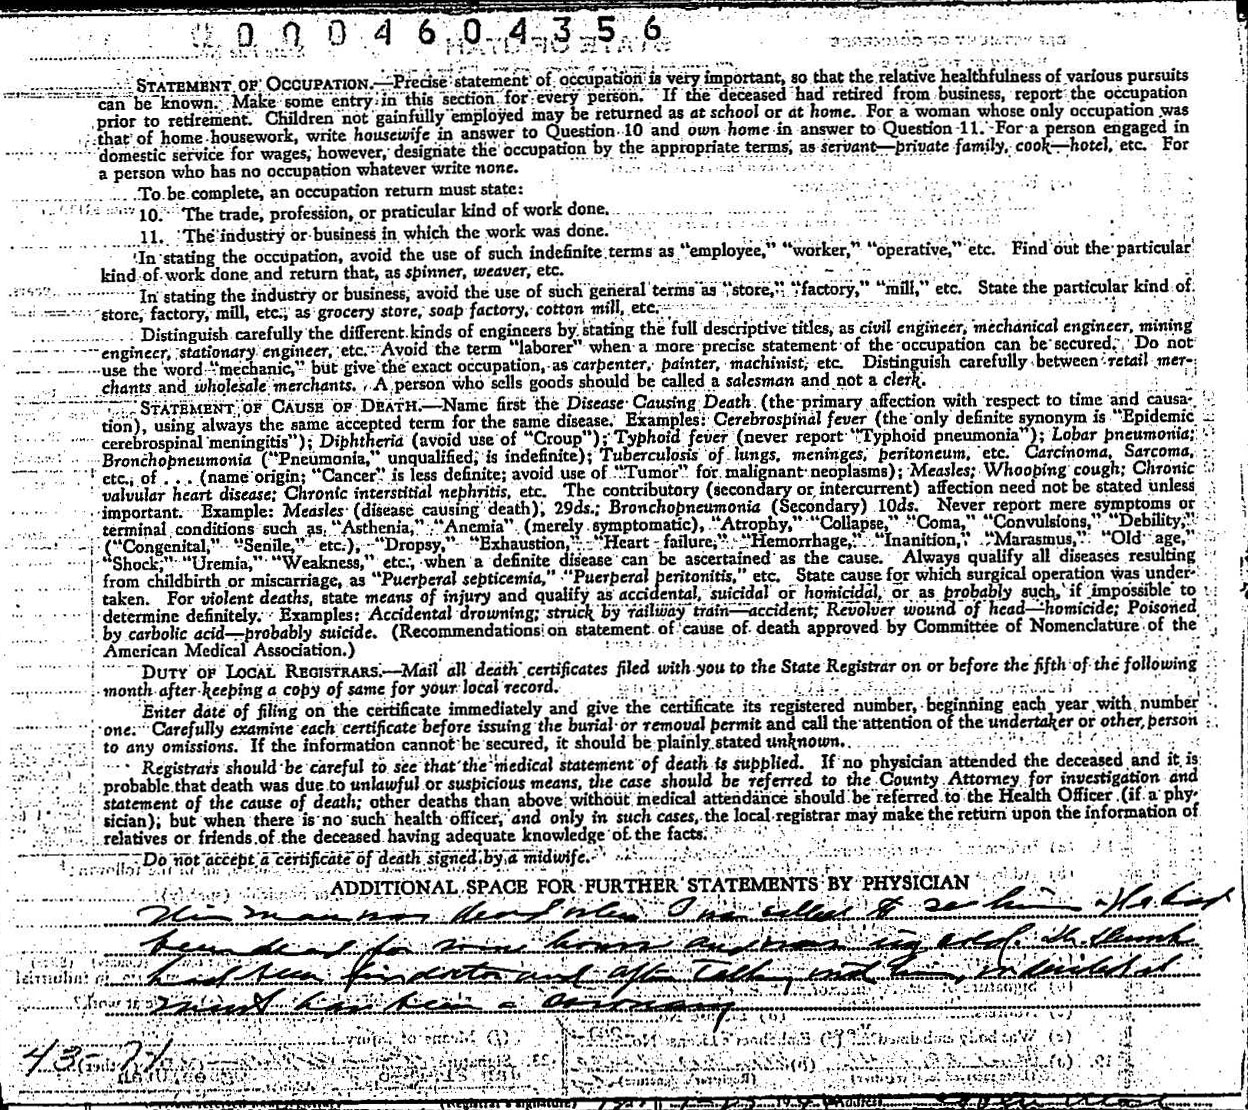 00004604356
STATEMENT OF OCCUPATION.—Precise statement of occupation is very important, so that the relative healthfulness of various pursuits
can be known. Make some entry in this section for every person. If the deceased had retired from business, report the occupation
prior to retirement. Children not gainfully employed may be returned as at school or at home. For a woman whose only occupation was
that of home housework, write housewife in answer to Question 10 and own home in answer to Question 11. For a person engaged in
domestic service for wages, however, designate the occupation by the appropriate terms, as servant—private family, cook—hotel, etc. For
a person who has no occupation whatever write none.
To be complete, an occupation return must state:
10. The trade, profession, or praticular kind of work done.
11. The industry or business in which the work was done.
In stating the occupation, avoid the use of such indefinite terms as "employee," "worker," "operative," etc. Find out the particular
kind of work done and return that, as spinner, weaver, etc.
In stating the industry or business, avoid the use of such general terms as "store," "factory," "mill," etc. State the particular kind of
store, factory, mill, etc., as grocery store, soap factory, cotton mill, etc.
Distinguish carefully the different kinds of engineers by stating the full descriptive titles, as civil engineer, mechanical engineer, mining
engineer, stationary engineer, etc. Avoid the term "laborer" when a more precise statement of the occupation can be secured. Do not
use the word "mechanic," but give the exact occupation, as carpenter, painter, machinist, etc. Distinguish carefully between retail mer-
chants and wholesale merchants. A person who sells goods should be called a salesman and not a clerk.
STATEMENT OF CAUSE OF DEATH.—Name first the Disease Causing Death (the primary affection with respect to time and causa-
tion), using always the same accepted term for the same disease. Examples: Cerebrospinal fever (the only definite synonym is "Epidemic
cerebrospinal meningitis"); Diphtheria (avoid use of "Croup"); Typhoid fever (never report "Typhoid pneumonia"); Lobar pneumonia;
Bronchopneumonia ("Pneumonia," unqualified, is indefinite); Tuberculosis of lungs, meninges, peritoneum, etc. Carcinoma, Sarcoma,
etc., of . . . (name origin; "Cancer" is less definite; avoid use of "Tumor" for malignant neoplasms); Measles; Whooping cough; Chronic
valvular heart disease; Chronic interstitial nephritis, etc. The contributory (secondary or intercurrent) affection need not be stated unless
important. Example: Measles (disease causing death), 29ds.; Bronchopneumonia (Secondary) 10ds. Never report mere symptoms or
terminal conditions such as, "Asthenia," "Anemia" (merely symptomatic), "Atrophy," "Collapse," "Coma," "Convulsions," "Debility,"
("Congenital," "Senile," etc.), "Dropsy," "Exhaustion," "Heart failure," "Hemorrhage," "Inanition," "Marasmus," "Old age,"
"Shock," "Uremia," "Weakness," etc., when a definite disease can be ascertained as the cause. Always qualify all diseases resulting
from childbirth or miscarriage, as "Puerperal septicemia," "Puerperal peritonitis," etc. State cause for which surgical operation was under-
taken. For violent deaths, state means of injury and qualify as accidental, suicidal or homicidal, or as probably such, if impossible to
determine definitely. Examples: Accidental drowning; struck by railway train—accident; Revolver wound of head—homicide; Poisoned
by carbolic acid—probably suicide. (Recommendations on statement of cause of death approved by Committee of Nomenclature of the
American Medical Association.)
DUTY OF LOCAL REGISTRARS.—Mail all death certificates filed with you to the State Registrar on or before the fifth of the following
month after keeping a copy of same for your local record.
Enter date of filing on the certificate immediately and give the certificate its registered number, beginning each year with number
one. Carefully examine each certificate before issuing the burial or removal permit and call the attention of the undertaker or other person
to any omissions. If the information cannot be secured, it should be plainly stated unknown.
Registrars should be careful to see that the medical statement of death is supplied. If no physician attended the deceased and it is
probable that death was due to unlawful or suspicious means, the case should be referred to the County Attorney for investigation and
statement of the cause of death; other deaths than above without medical attendance should be referred to the Health Officer (if a phy-
sician); but when there is no such health officer, and only in such cases, the local registrar may make the return upon the information of
relatives or friends of the deceased having adequate knowledge of the facts.
Do not accept a certificate of death signed by a midwife.
ADDITIONAL SPACE FOR FURTHER STATEMENTS BY PHYSICIAN
This man was dead when I was called to see him. He had
been dead for some hours and was
had been his doctor and after talking with him, we decided it
must have been a coronary